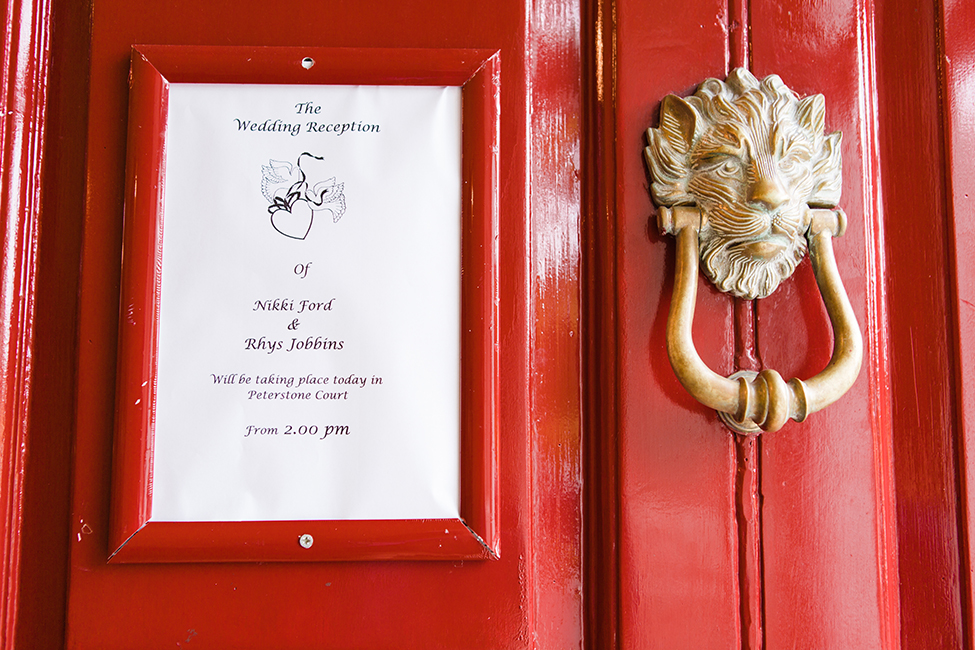 The
Wedding Reception
Of
Nikki Ford
&
Rhys Jobbins
Will be taking place today in
Peterstone Court
From 2.00 pm